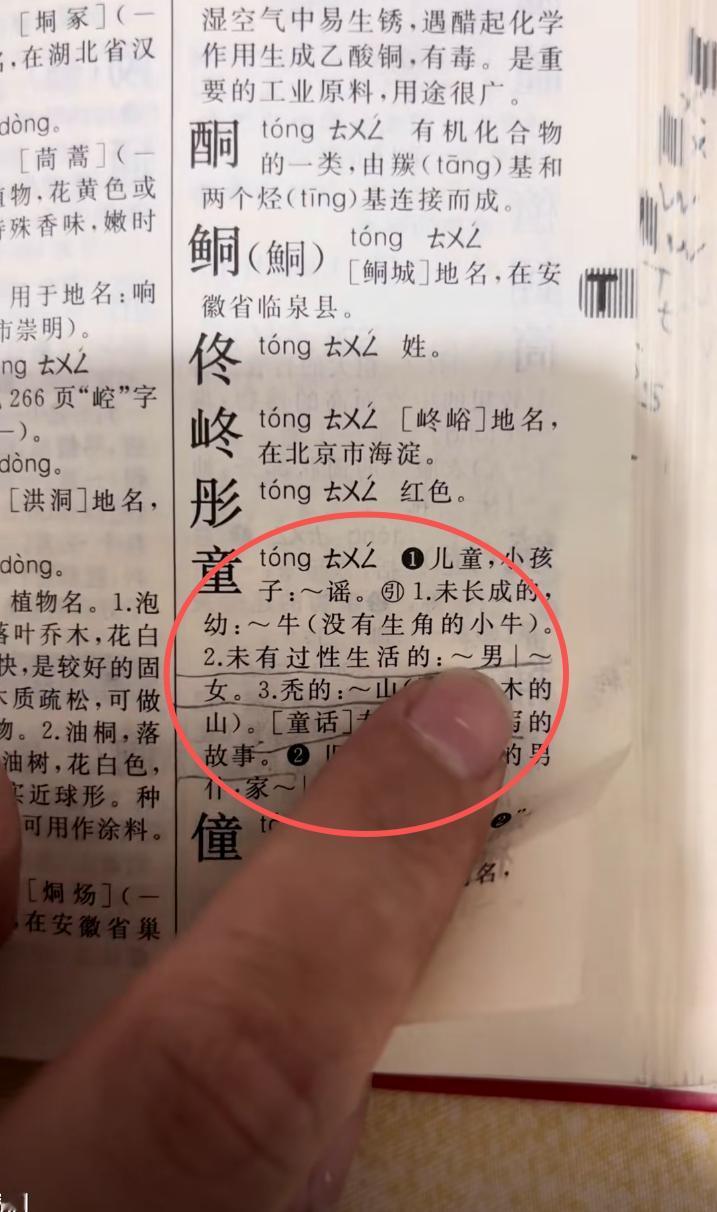 [垌冢](一
名,在湖北省汉
dòng。
[茼蒿](一
植物,花黄色或
特殊香味,嫩时
用于地名:响
市崇明)。
266页“崆”字
一)。
dòng。
[洪洞]地名,
dòng。
植物名。1.泡
落叶乔木,花白
快,是较好的固
木质疏松,可做
物。2.油桐,落
油树,花白色,
实近球形。种
可用作涂料。
[烔炀](一
,在安徽省巢
湿空气中易生锈,遇醋起化学
作用生成乙酸铜,有毒。是重
要的工业原料,用途很广。
酮 tóng ㄊㄨㄥˊ 有机化合物
的一类,由羰(tāng)基和
两个烃(tīng)基连接而成。
鲖(鮦) tóng ㄊㄨㄥˊ
[鲖城]地名,在安
徽省临泉县。
佟 tóng ㄊㄨㄥˊ 姓。
峂 tóng ㄊㄨㄥˊ [峂峪]地名,
在北京市海淀。
彤 tóng ㄊㄨㄥˊ 红色。
童 tóng ㄊㄨㄥˊ ❶儿童,小孩
子:～谣。㊁1.未长成的,
幼:～牛(没有生角的小牛)。
2.未有过性生活的:～男|～
女。3.秃的:～山 木的
山)。[童话] 写的
故事。❷ 的男
仆:家～|
僮
名,
T